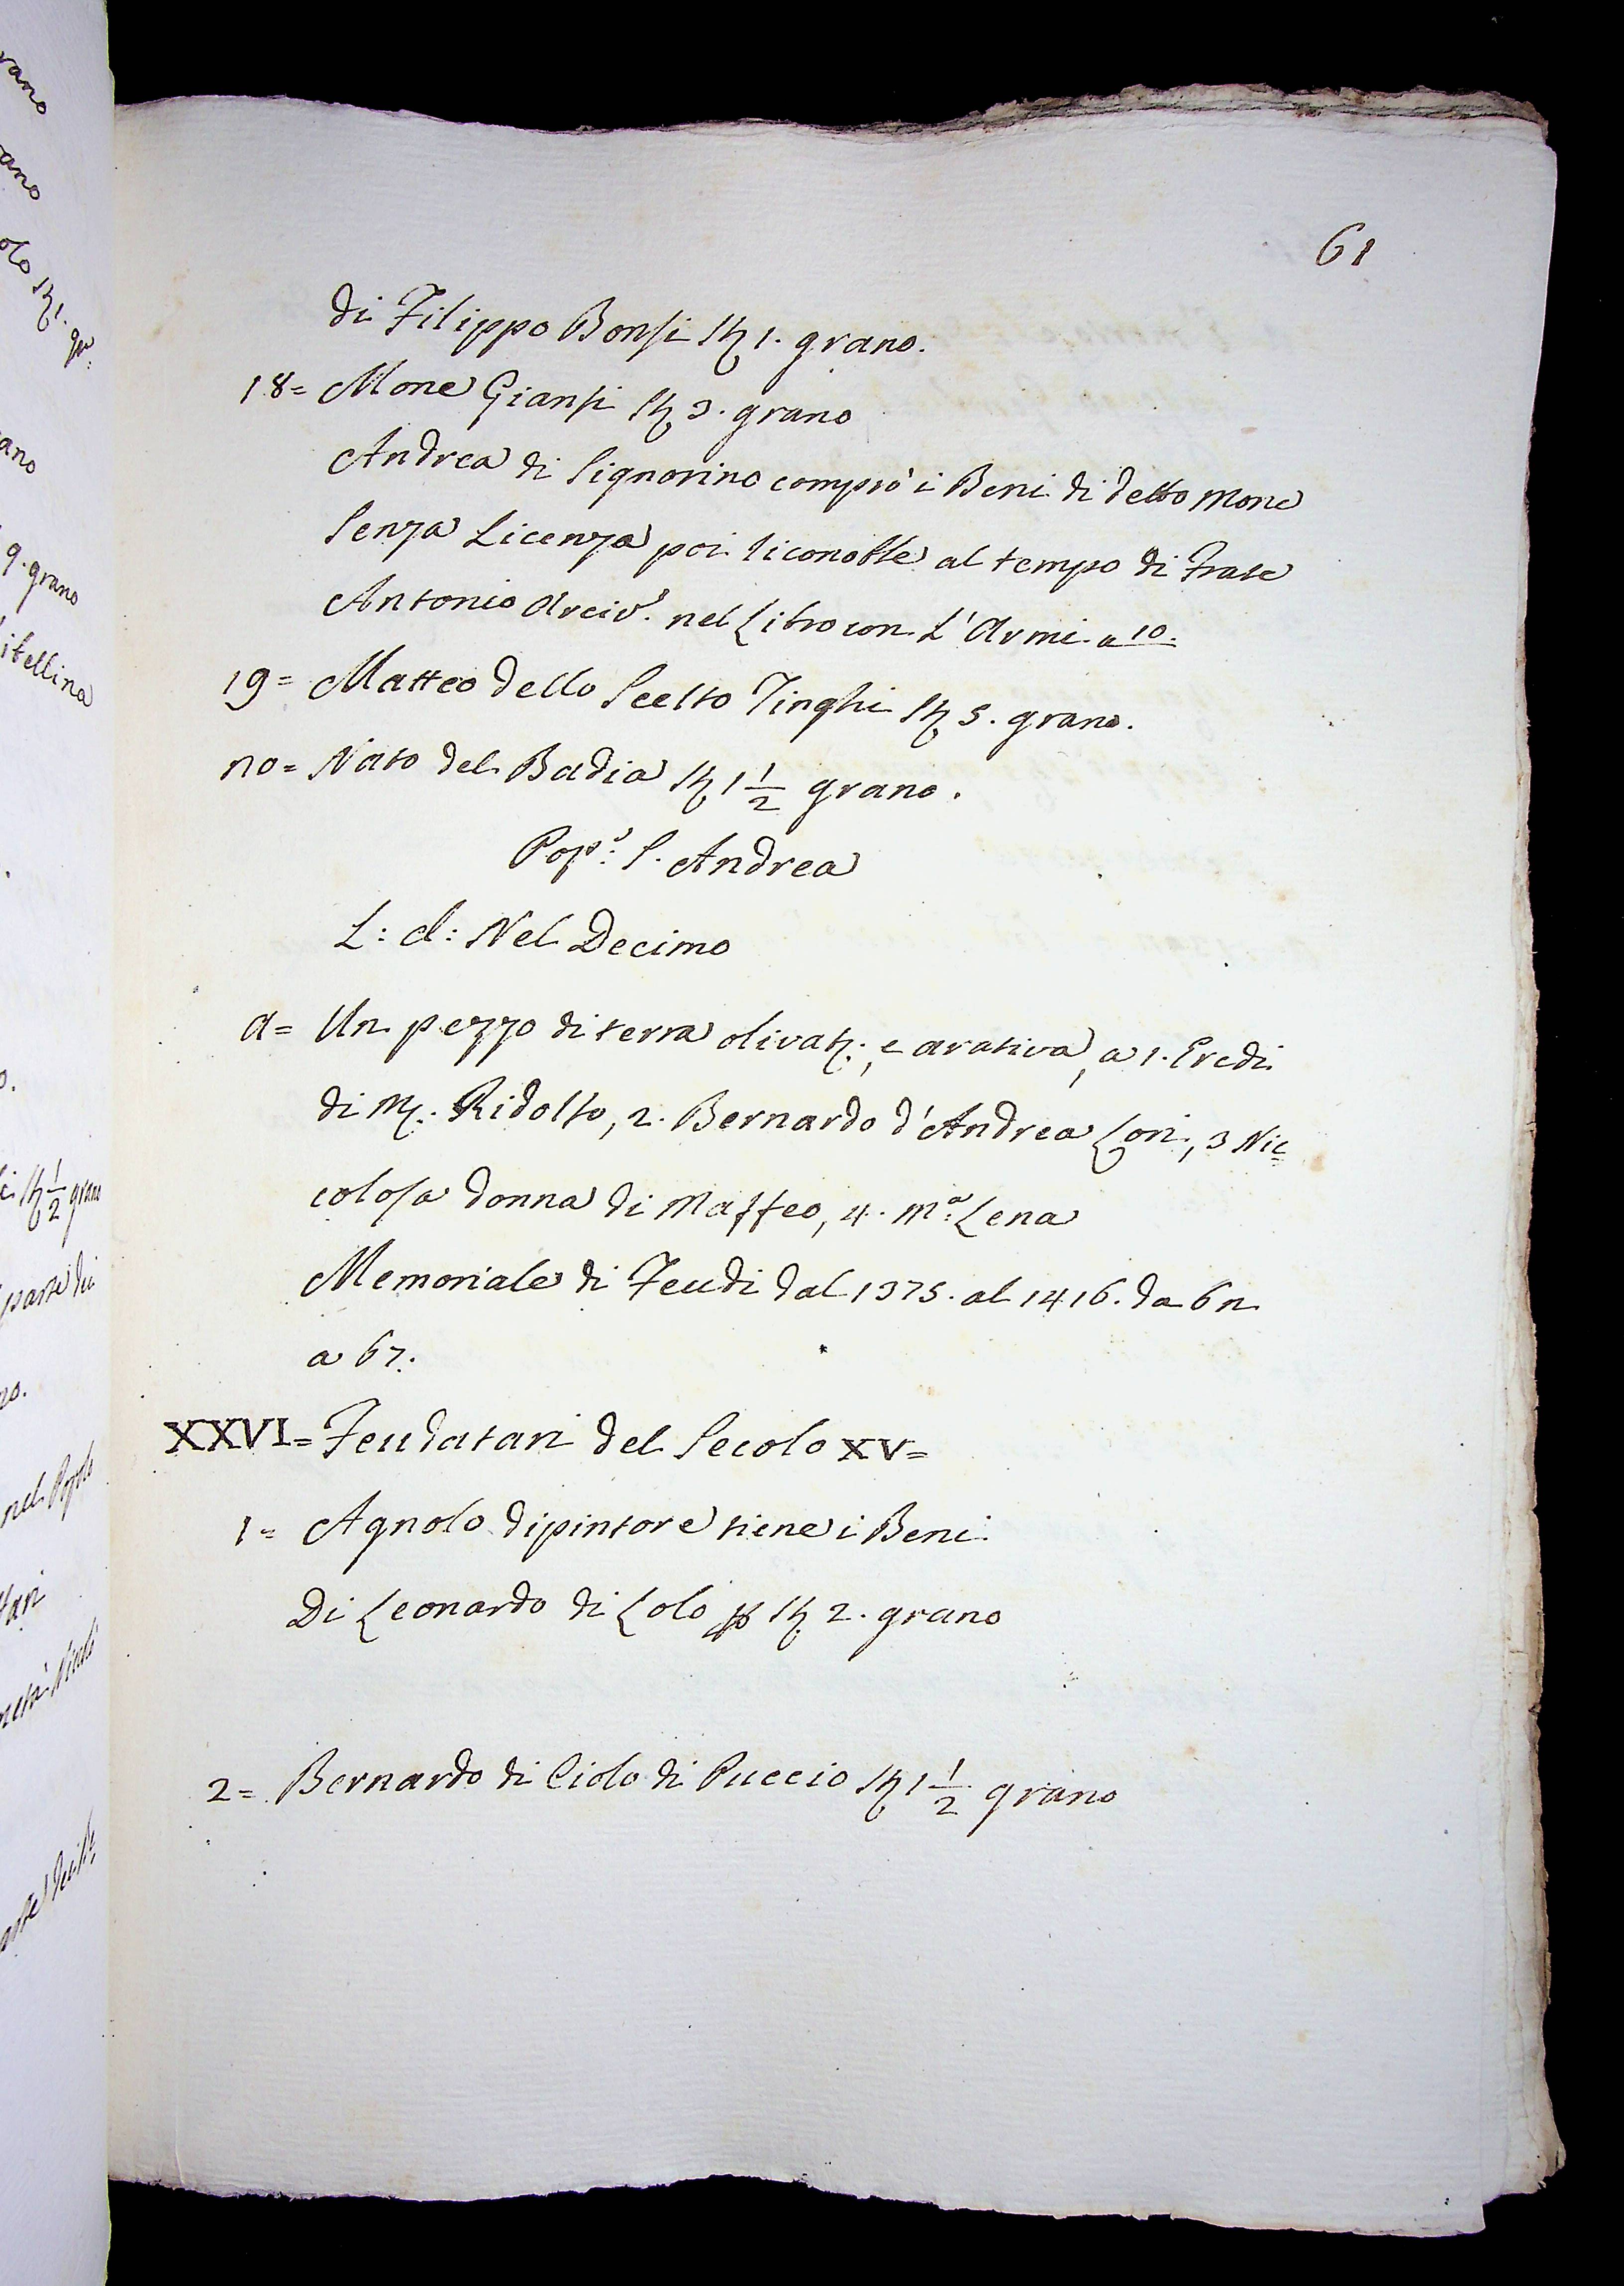 61
di Filippo Bonsi St 1. grano.
18= Mone Giansi St 3. grano
Andrea di Signorino comprò i Beni di detto Mone
Senza Licenza poi riconobbe al tempo di Frate
Antonio Arciv.º nel Libro con L'Armi a 10.
19= Matteo dello Scelto Tinghi St 5. grano.
20= Nato del Badia St 1 1/2 grano.
Pop.º S. Andrea
L: A: Nel Decimo
A= Un pezzo di terra olivat:, e arativa, a 1. Eredi
di M. Ridolfo, 2. Bernardo d'Andrea Lori, 3 Nic=
colosa donna di Maffeo, 4. M.ª Lena
Memoriale di Feudi dal 1375. al 1416. da 62
a 67.
XXVI= Feudatari del Secolo XV=
1= Agnolo dipintore tiene i Beni
Di Leonardo di Lolo p St 2. grano
2= Bernardo di Ciolo di Puccio St 1 1/2 grano